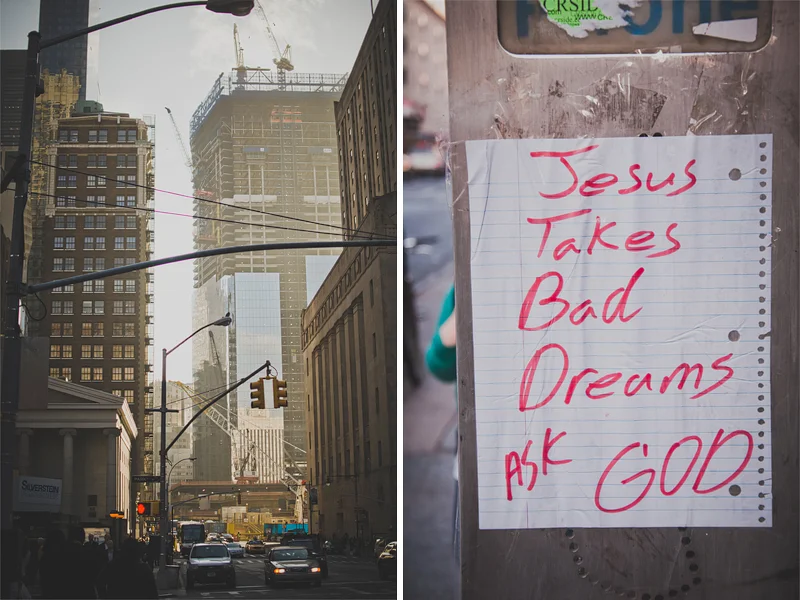 SILVERSTEIN
CRSIL
Phone
Jesus
Takes
Bad
Dreams
ASK GOD